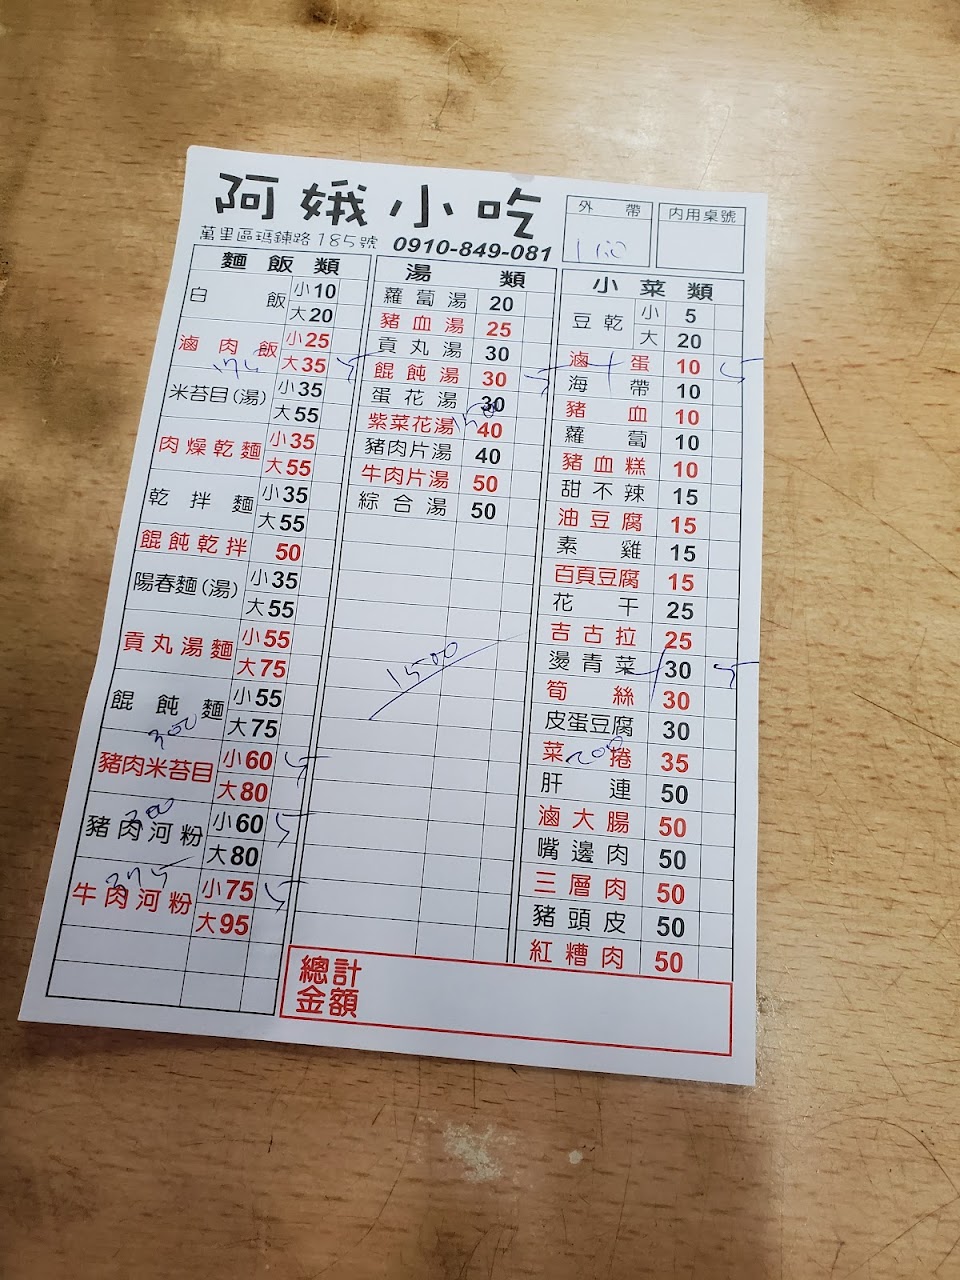 阿娥小吃
萬里區瑪鋉路185號 0910-849-081
外帶
內用桌號
麵飯類
白飯 小10
大20
滷肉飯 小25
大35 5
175
米苔目(湯) 小35
大55
肉燥乾麵 小35
大55
乾拌麵 小35
大55
餛飩乾拌 50
陽春麵(湯) 小35
大55
貢丸湯麵 小55
大75
餛飩麵 小55
大75
300
豬肉米苔目 小60 5
大80
300
豬肉河粉 小60 5
大80
375
牛肉河粉 小75 5
大95
湯類
蘿蔔湯 20
豬血湯 25
貢丸湯 30
餛飩湯 30 5
蛋花湯 30
150
紫菜花湯 40
豬肉片湯 40
牛肉片湯 50
綜合湯 50
1500
小菜類
豆乾 小 5
大 20
滷蛋 10 5
海帶 10
豬血 10
蘿蔔 10
豬血糕 10
甜不辣 15
油豆腐 15
素雞 15
百頁豆腐 15
花干 25
吉古拉 25
燙青菜 30 5
筍絲 30
皮蛋豆腐 30
菜捲 35
200
肝連 50
滷大腸 50
嘴邊肉 50
三層肉 50
豬頭皮 50
紅糟肉 50
總計
金額